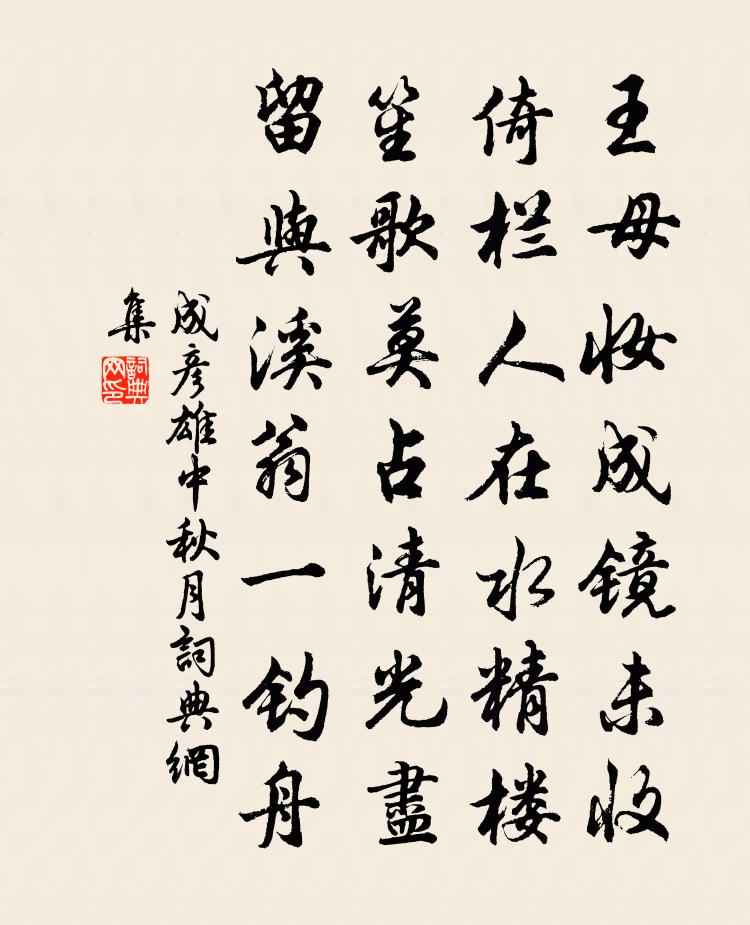 王母妝成镜未收
倚栏人在水精楼
笙歌莫占清光盡
留與溪翁一钓舟
成彦雄中秋月詞典網
集
詞典
网印